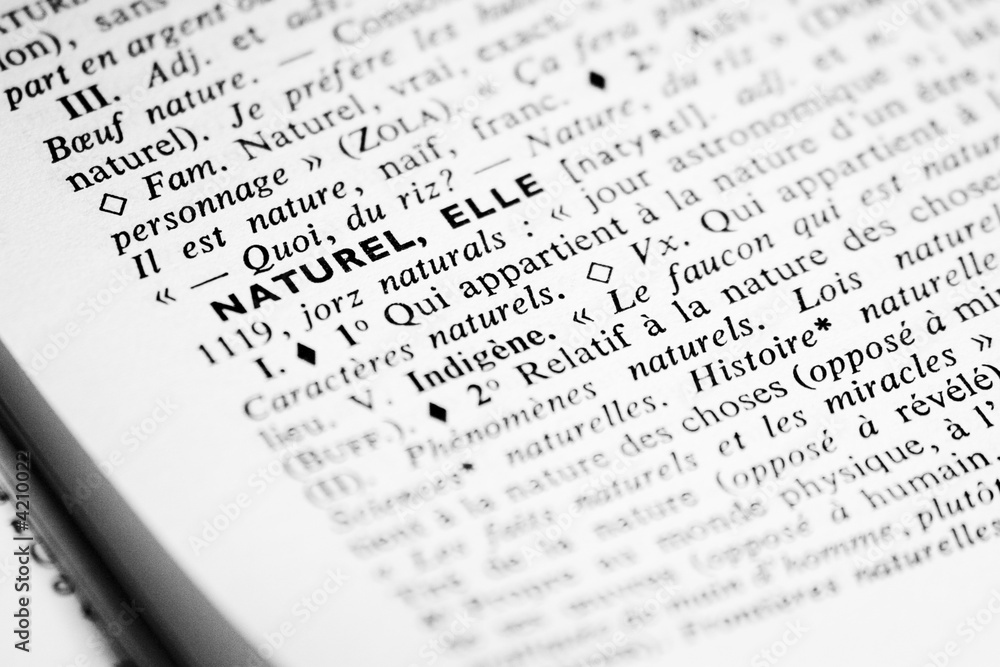 NATURE
ion), sans
part en argent ou
III. Adj. et adv. — Conso
Bœuf nature. — 
naturel). Je préfère les
◇ Fam. Naturel, vrai, exact
personnage » (ZOLA). « Ça fera
Il est nature, naïf, franc. ◆ 2°
« — Quoi, du riz? — Nature, du riz »
NATUREL, ELLE [natyrɛl]. adj. et
1119, jorz naturals : « jour astronomique » ; lat.
I. ◆ 1° Qui appartient à la nature d'un être,
Caractères naturels. ◇ Vx. Qui appartient à
lieu. V. Indigène. « Le faucon qui est naturel
(BUFF.). ◆ 2° Relatif à la nature des choses
(II). Phénomènes naturels. Lois naturel
Sciences* naturelles. Histoire* naturelle
à la nature des choses (opposé à mi
Les faits naturels et les miracles »
nature (opposé à révélé)
monde physique, à l'
(opposé à humain,
d'homme, plutôt
Frontières naturelles
Adobe Stock | #4210022